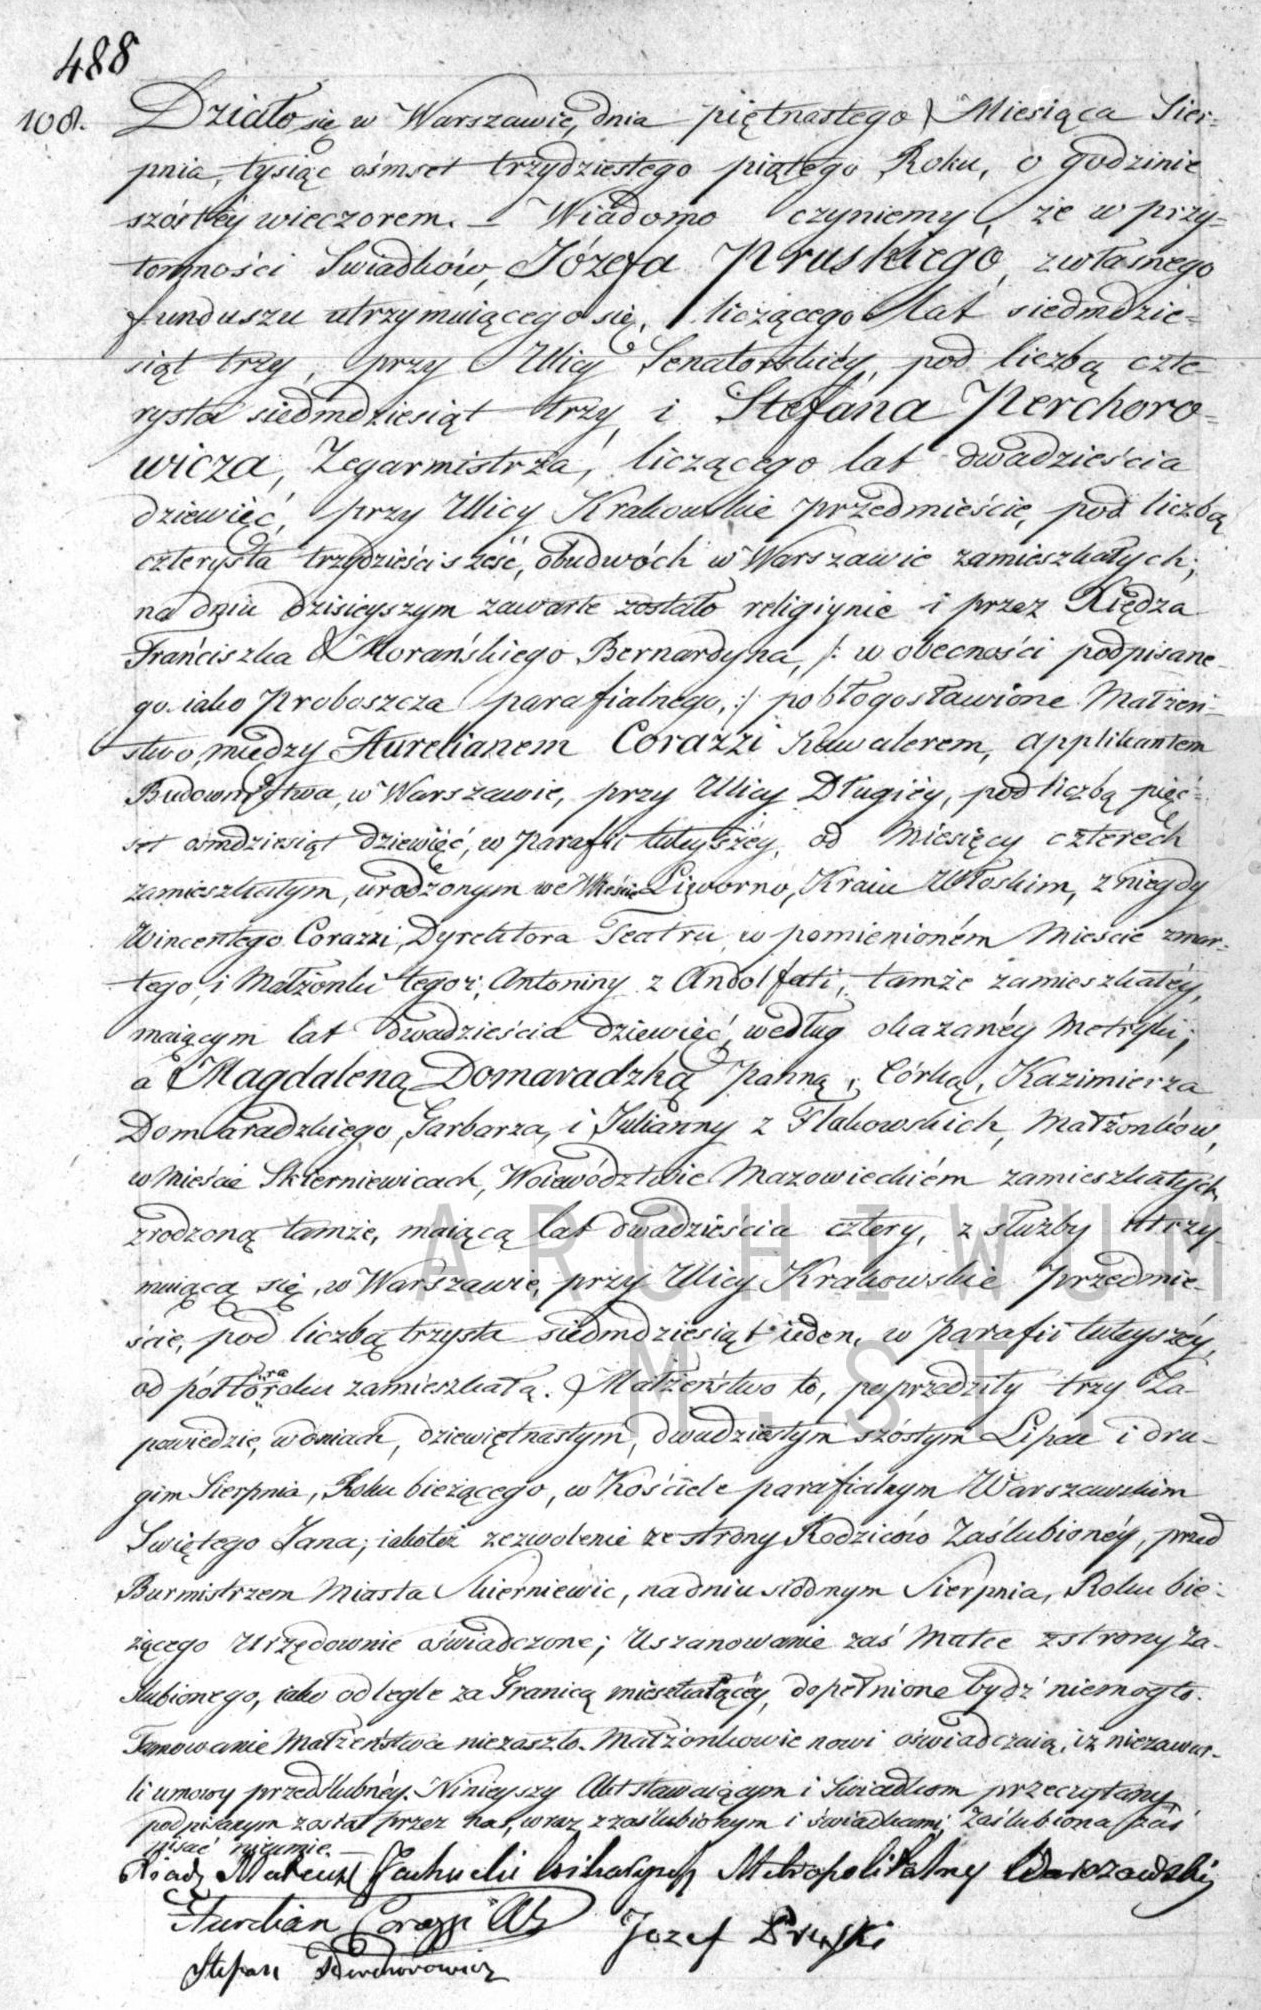 488
108. Działo się w Warszawie, dnia piętnastego Miesiąca Sier=
pnia, tysiąc ośmset trzydziestego piątego Roku, o godzinie
szóstéy wieczorem. – Wiadomo czyniemy, że w przy=
tomności Swiadków, Józefa Pruskiego, z własnego
funduszu utrzymuiącego się, liczącego lat siedmdzie=
siąt trzy, przy Ulicy Senatorskiéy, pod liczbą czte=
rysta siedmdziesiąt trzy, i Stefana Perchoro=
wicza, Zegarmistrza, liczącego lat dwadzieścia
dziewięć, przy Ulicy Krakowskie przedmieście, pod liczbą
czterysta trzydzieści sześć, obudwóch w Warszawie zamieszkałych;
na dniu dzisieyszym zawarte zostało religiynie i przez Xiędza
Franciszka Morańskiego Bernardyna, /: w obecności podpisane=
go iako Proboszcza parafialnego, :/ pobłogosławione Małżeń=
stwo, między Aurelianem Corazzi Kawalerem, applikantem
Budownictwa, w Warszawie, przy Ulicy Długiéy, pod liczbą pięć=
set ośmdziesiąt dziewięć, w parafii tuteyszéy, od Miesięcy czterech
zamieszkałym, urodzonym we Mieście Liworno, Kraiu Włoskim, z niegdy
Wincentego Corazzi, Dyrektora Teatru, w pomienioném Mieście zmar=
łego, i Małżonki tegoż, Antoniny z Andolfati, tamże zamieszkałéy,
maiącym lat dwadzieścia dziewięć, według okazanéy Metryki;
a Magdaleną Domaradzką Panną, Córką, Kazimierza
Domaradzkiego, Garbarza, i Julianny z Flakowskich, Małżonków,
w mieście Skierniewicach, Woiewództwie Mazowieckiém zamieszkałych,
zrodzoną tamże, maiącą lat dwadzieścia cztery, z służby utrzy=
muiącą się, w Warszawie, przy Ulicy Krakowskie Przedmie=
ście, pod liczbą trzysta siedmdziesiąt ieden, w Parafii tuteyszéy,
od półtora roku zamieszkałą. Małżeństwo to, poprzedziły trzy Za=
powiedzie, w dniach, dziewiętnastym, dwudziestym szóstym Lipca i dru=
gim Sierpnia, Roku bieżącego, w Kościele parafialnym Warszawskim
Swiętego Jana; iakoteż zezwolenie ze strony Rodziców Zaślubionéy, przed
Burmistrzem Miasta Skierniewic, na dniu siódmym Sierpnia, Roku bie=
żącego urzędownie oświadczone; Uszanowanie zaś Matce z strony Za=
ślubionego, iako odlegle za Granicą mieszkaiącéy, dopełnione bydź niemogło.
Tamowanie Małżeństwa niezaszło. Małżonkowie nowi oświadczaią, iż niezawar=
li umowy przedślubnéy. Ninieyszy Akt stawaiącym i Świadkom przeczytany
podpisanym został przez nas, wraz z zaślubionym i świadkami, Zaślubiona zaś
pisać nieumie. –
Xiądz Mateusz Wikaryusz Metropolitalny Warszawski
Aurelian Corazzi Józef Pruski
Stefan Perchorowicz
ARCHIWUM
M. ST.